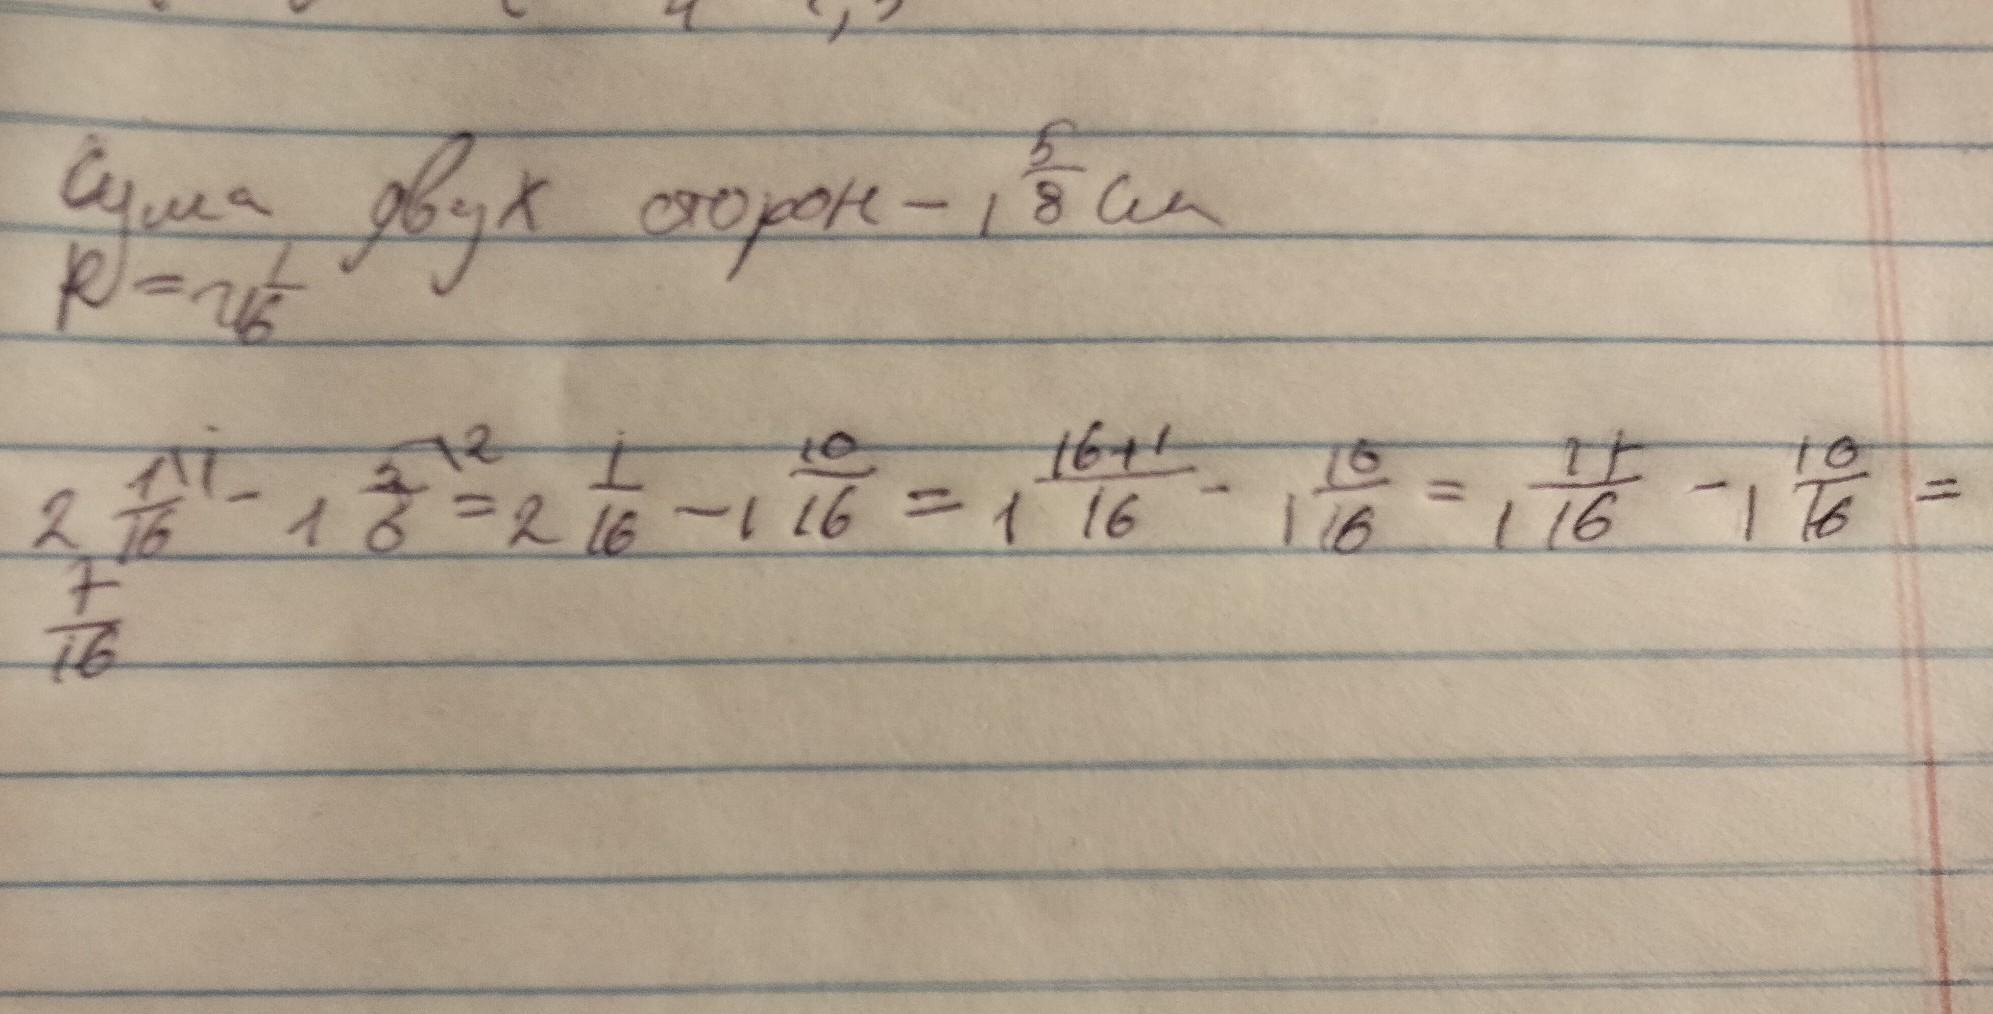 Сума двух сторон – 1 5/8 см
P = 2 1/16
2 1\1/16 - 1 5\2/8 = 2 1/16 – 1 10/16 = 1 16+1/16 - 1 10/16 = 1 17/16 - 1 10/16 =
7/16